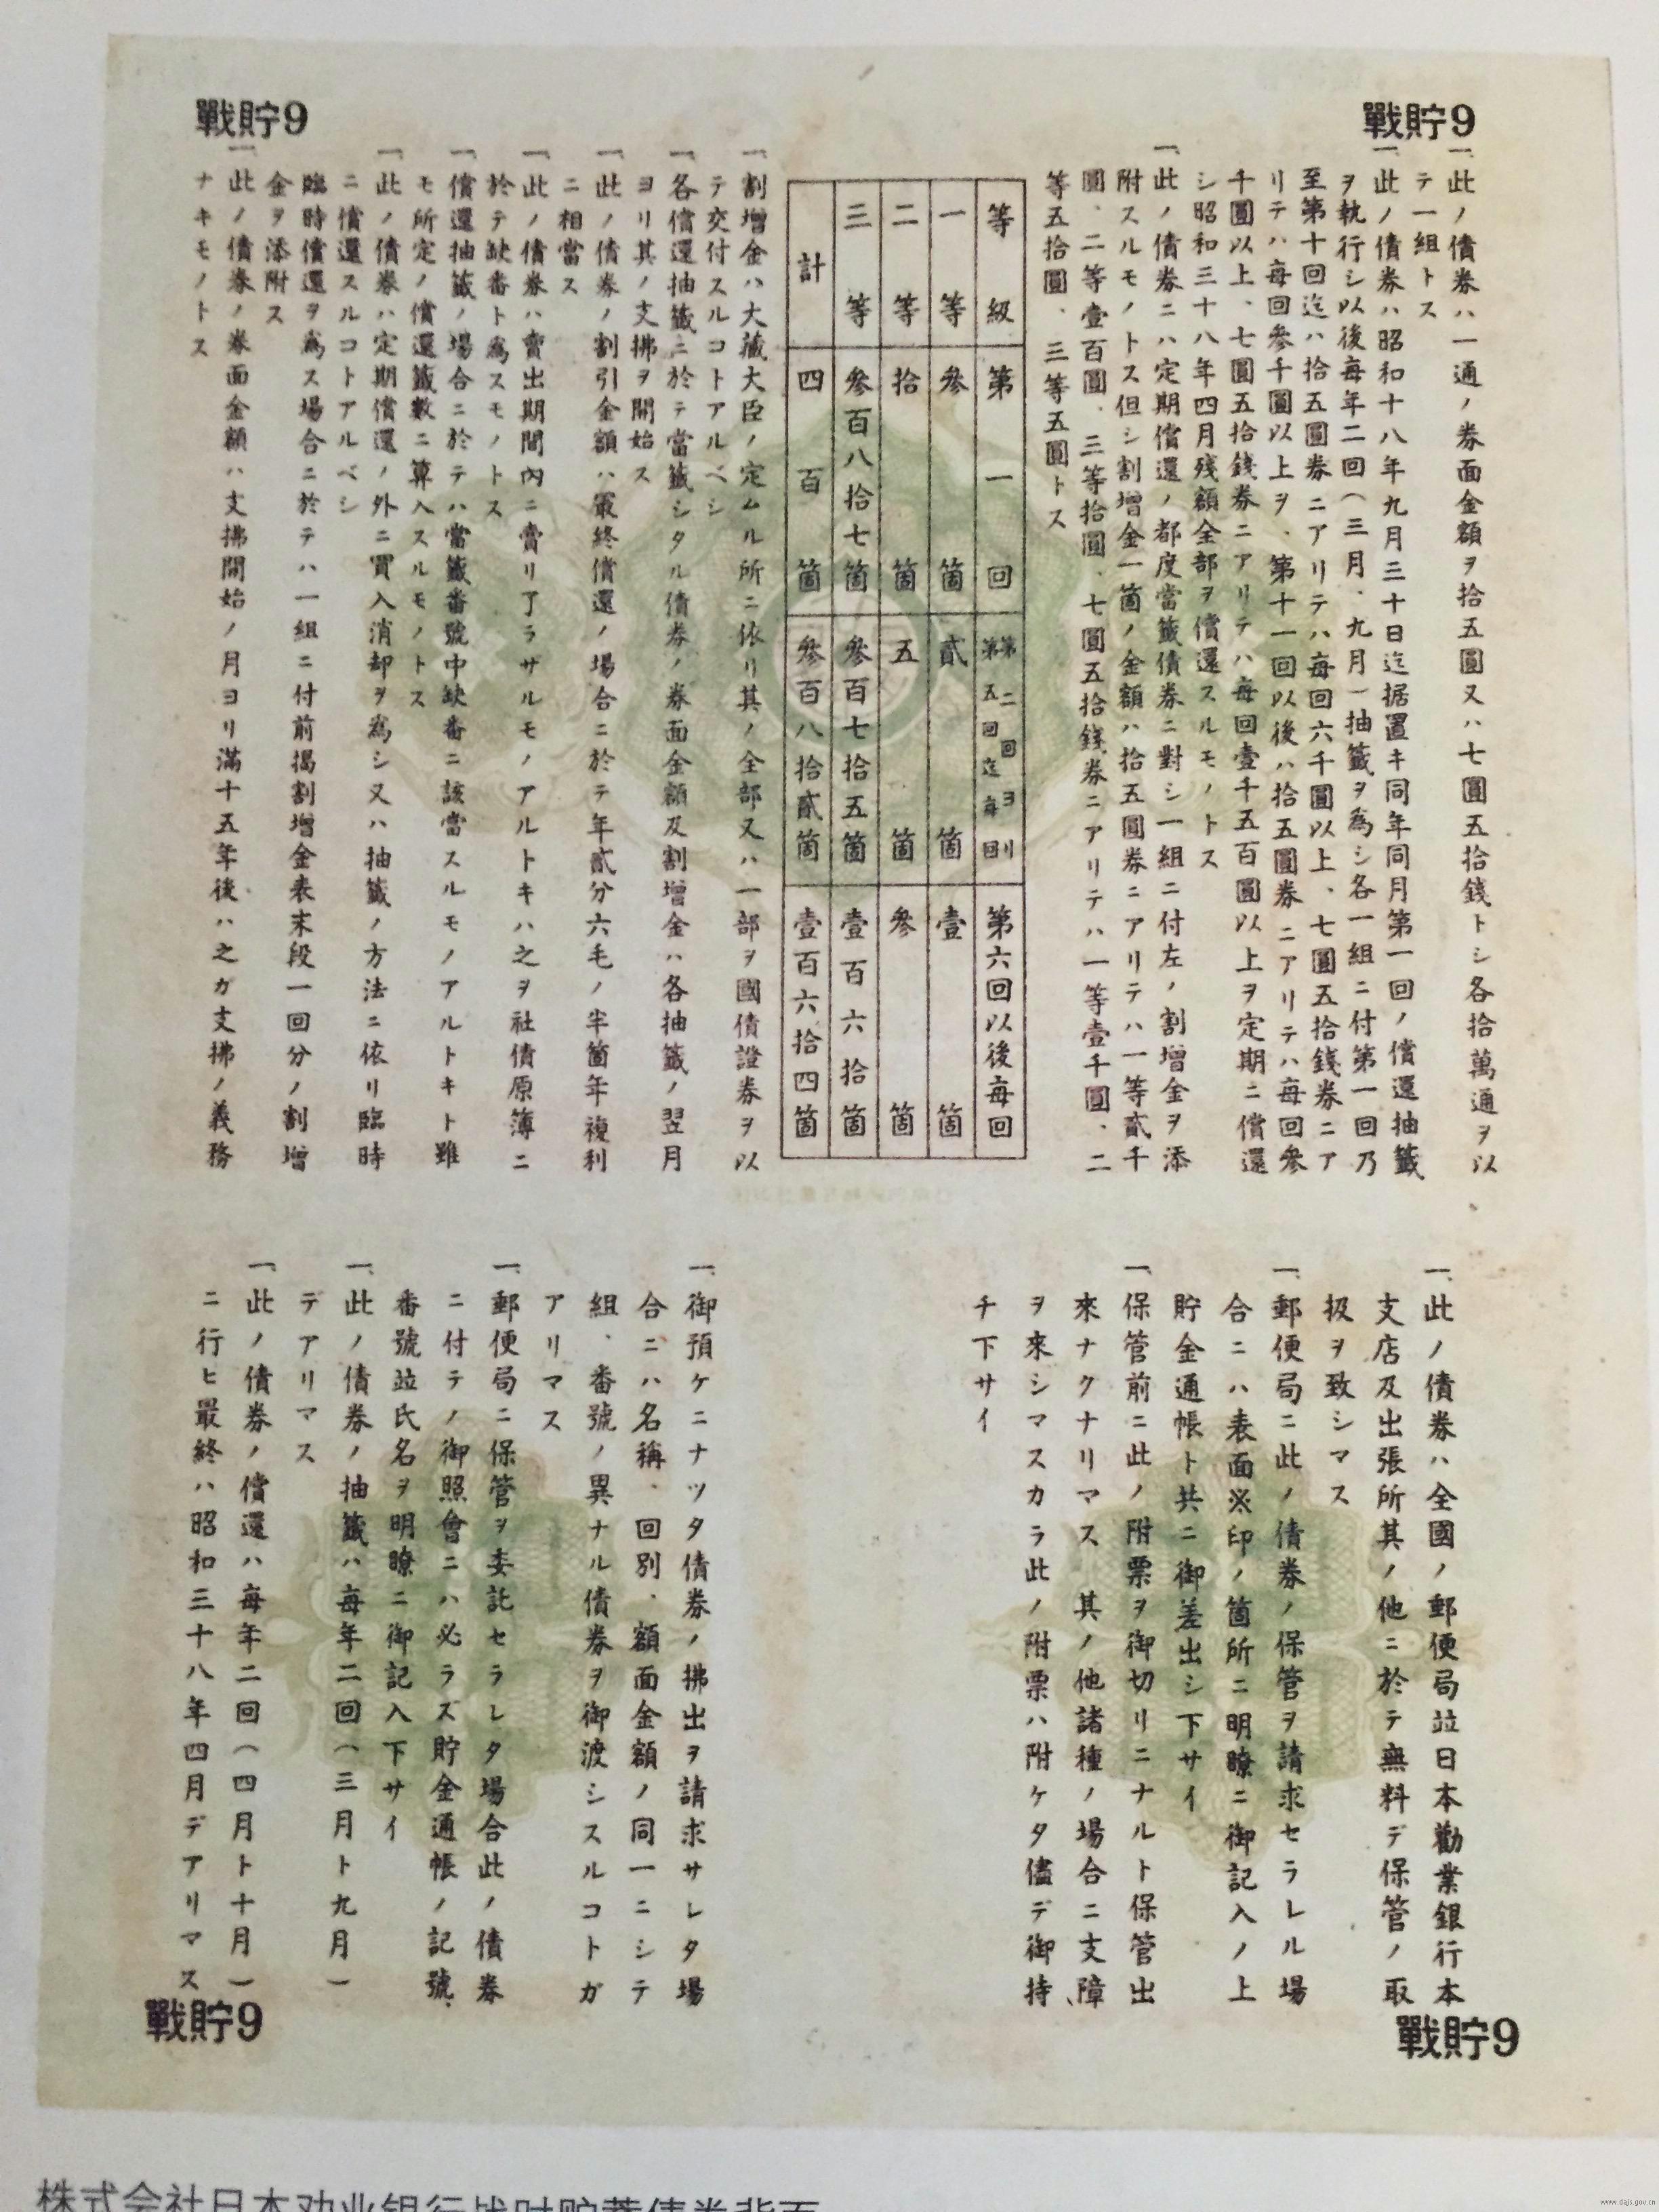 戰貯9
戰貯9
一、此ノ債券ハ一通ノ券面金額ヲ拾五圓又ハ七圓五拾錢トシ各拾萬通ヲ以
テ一組トス
一、此ノ債券ハ昭和十八年九月三十日迄据置キ同年同月第一回ノ償還抽籤
ヲ執行シ以後每年二回(三月、九月)抽籤ヲ爲シ各一組ニ付第一回乃
至第十回迄ハ拾五圓券ニアリテハ每回六千圓以上、七圓五拾錢券ニア
リテハ每回參千圓以上ヲ、第十一回以後ハ拾五圓券ニアリテハ每回參
千圓以上、七圓五拾錢券ニアリテハ每回壹千五百圓以上ヲ定期ニ償還
シ昭和三十八年四月殘額全部ヲ償還スルモノトス
一、此ノ債券ニハ定期償還ノ都度當籤債券ニ對シ一組ニ付左ノ割增金ヲ添
附スルモノトス但シ割增金一箇ノ金額ハ拾五圓券ニアリテハ一等貳千
圓、二等壹百圓、三等拾圓、七圓五拾錢券ニアリテハ一等壹千圓、二
等五拾圓、三等五圓トス
等級 第一回 第二回ヨリ第五回迄每回 第六回以後每回
一等 參箇 貳箇 壹箇
二等 拾箇 五箇 參箇
三等 參百八拾七箇 參百七拾五箇 壹百六拾箇
計 四百箇 參百八拾貳箇 壹百六拾四箇
一、割增金ハ大藏大臣ノ定ムル所ニ依リ其ノ全部又ハ一部ヲ國債證券ヲ以
テ交付スルコトアルベシ
一、各償還抽籤ニ於テ當籤シタル債券ノ券面金額及割增金ハ各抽籤ノ翌月
ヨリ其ノ支拂ヲ開始ス
一、此ノ債券ノ割引金額ハ最終償還ノ場合ニ於テ年貳分六毛ノ半箇年複利
ニ相當ス
一、此ノ債券ハ賣出期間內ニ賣リ了ラサルモノアルトキハ之ヲ社債原簿ニ
於テ缺番ト爲スモノトス
一、償還抽籤ノ場合ニ於テハ當籤番號中缺番ニ該當スルモノアルトキト雖
モ所定ノ償還籤數ニ算入スルモノトス
一、此ノ債券ハ定期償還ノ外ニ買入消却ヲ爲シ又ハ抽籤ノ方法ニ依リ臨時
ニ償還スルコトアルベシ
臨時償還ヲ爲ス場合ニ於テハ一組ニ付前揭割增金表末段一回分ノ割增
金ヲ添附ス
一、此ノ債券ノ券面金額ハ支拂開始ノ月ヨリ滿十五年後ハ之ガ支拂ノ義務
ナキモノトス
一、此ノ債券ハ全國ノ郵便局竝日本勸業銀行本
支店及出張所其ノ他ニ於テ無料デ保管ノ取
扱ヲ致シマス
一、郵便局ニ此ノ債券ノ保管ヲ請求セラレル場
合ニハ表面※印ノ箇所ニ明瞭ニ御記入ノ上
貯金通帳ト共ニ御差出シ下サイ
一、保管前ニ此ノ附票ヲ御切リニナルト保管出
來ナクナリマス 其ノ他諸種ノ場合ニ支障
ヲ來シマスカラ此ノ附票ハ附ケタ儘デ御持
チ下サイ
一、御預ケニナツタ債券ノ拂出ヲ請求サレタ場
合ニハ名稱、回別、額面金額ノ同一ニシテ
組、番號ノ異ナル債券ヲ御渡シスルコトガ
アリマス
一、郵便局ニ保管ヲ委託セラレタ場合此ノ債券
ニ付テノ御照會ニハ必ラズ貯金通帳ノ記號、
番號竝氏名ヲ明瞭ニ御記入下サイ
一、此ノ債券ノ抽籤ハ每年二回(三月ト九月)
デアリマス
一、此ノ債券ノ償還ハ每年二回(四月ト十月)
ニ行ヒ最終ハ昭和三十八年四月デアリマス
戰貯9
戰貯9
株式会社日本劝业银行战时贮蓄债券背面
www.dajs.gov.cn